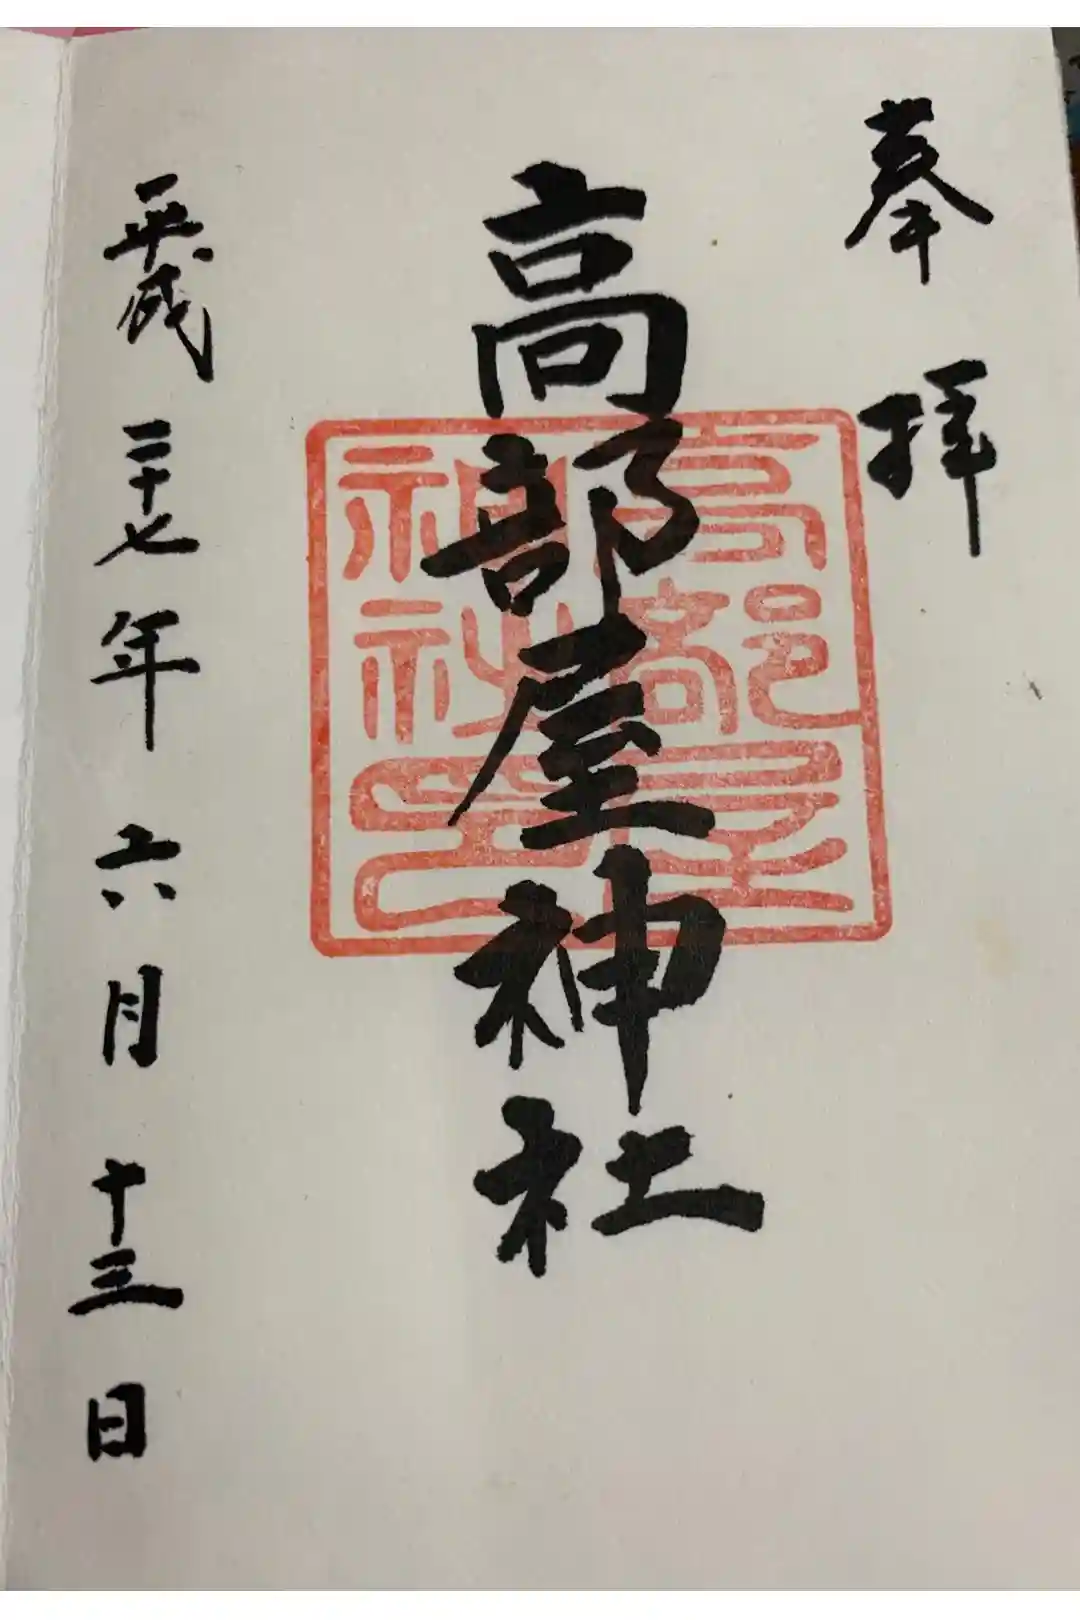 奉拝
高部屋神社
高部屋
神社印
平成二十七年六月十三日